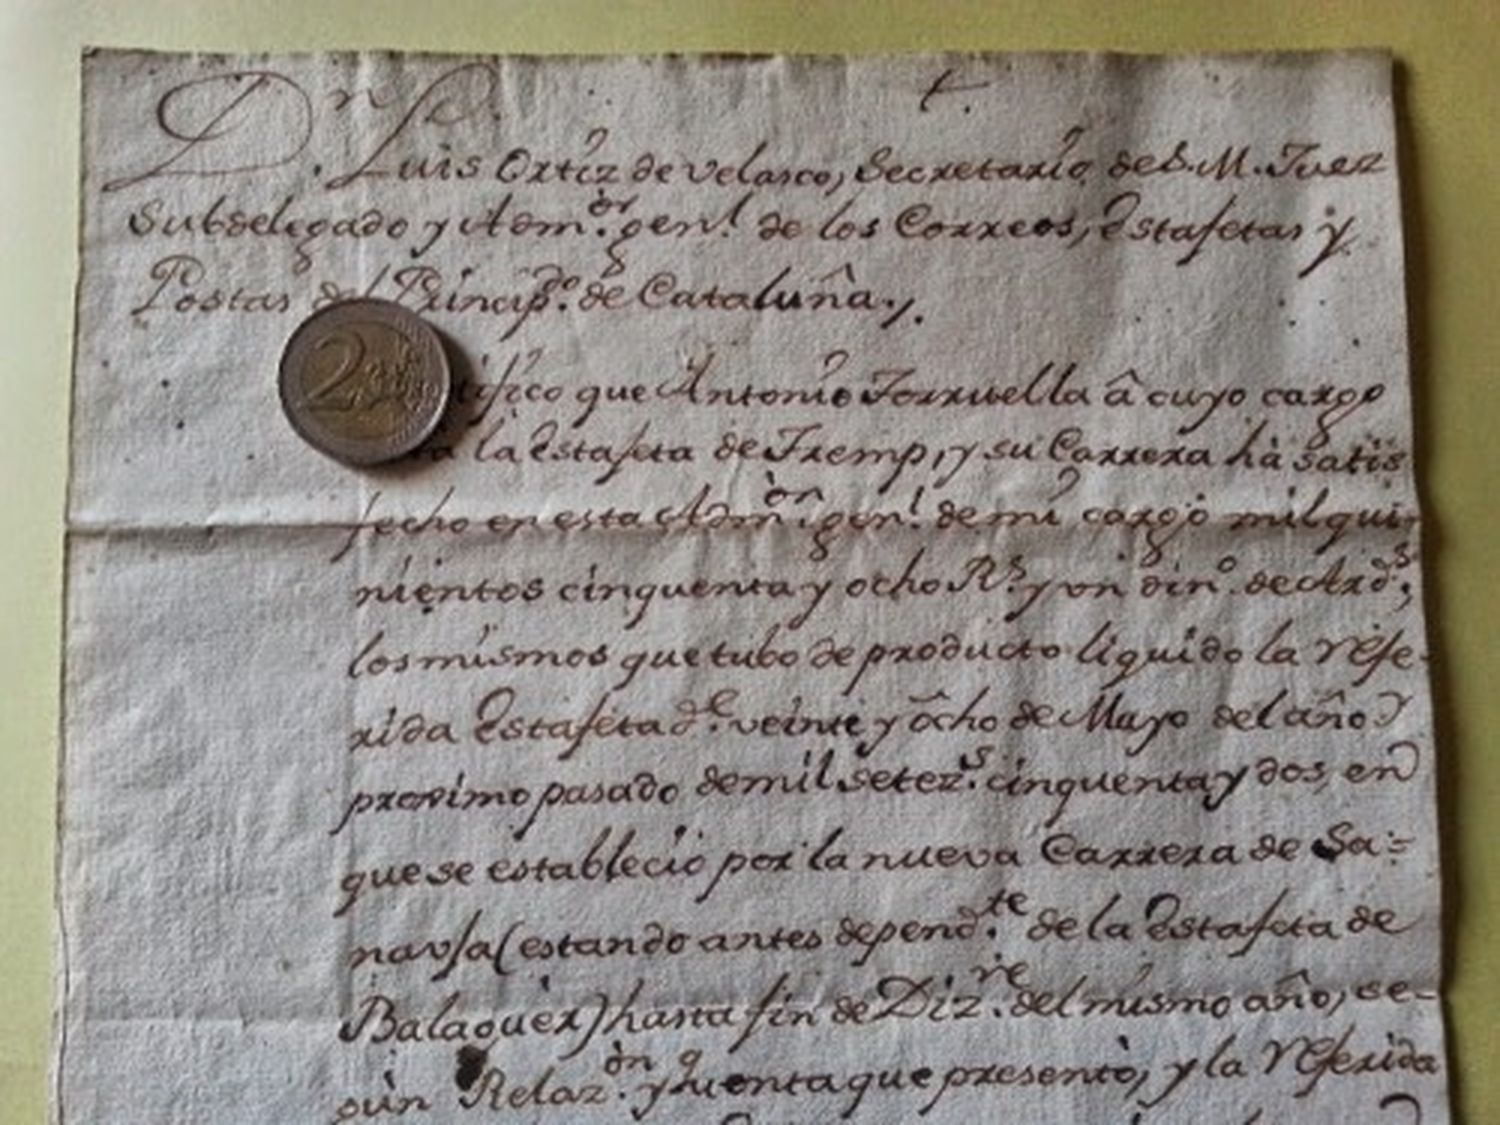 D.ⁿ Luis Ortiz de Velasco, Secretario de S. M. Juez
Subdelegado y Adm.ᵒʳ gen.ˡ de los Correos, Estafetas y
Postas del Princip.ᵈᵒ de Cataluña.
tifico que Antonio Torruella â cuyo cargo
ta la Estafeta de Tremp, y su Carrera hà satis
fecho en esta Adm.ᵒⁿ gen.ˡ de mi cargo mil qui-
nientos cinquenta y ocho R.ˢ y un din.ᵒ de Ard.ˢ,
los mismos que tubo de producto liquido la refe-
rida Estafeta d.ᵉ veinte y ôcho de Mayo del año
proximo pasado de mil setez.ˢ cinquenta y dos, en
que se estableciò por la nueva Carrera de Sa=
nauja (estando antes depend.ᵗᵉ de la Estafeta de
Balaguèr) hasta fin de Diz.ʳᵉ del mismo año, se-
gùn Relaz.ᵒⁿ y quenta que presentò, y la referida
2 EURO